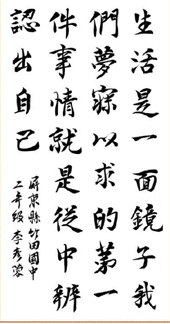 生活是一面鏡子我
們夢寐以求的第一
件事情就是從中辨
認出自己
屏東縣竹田國中
二年級李彥蓉